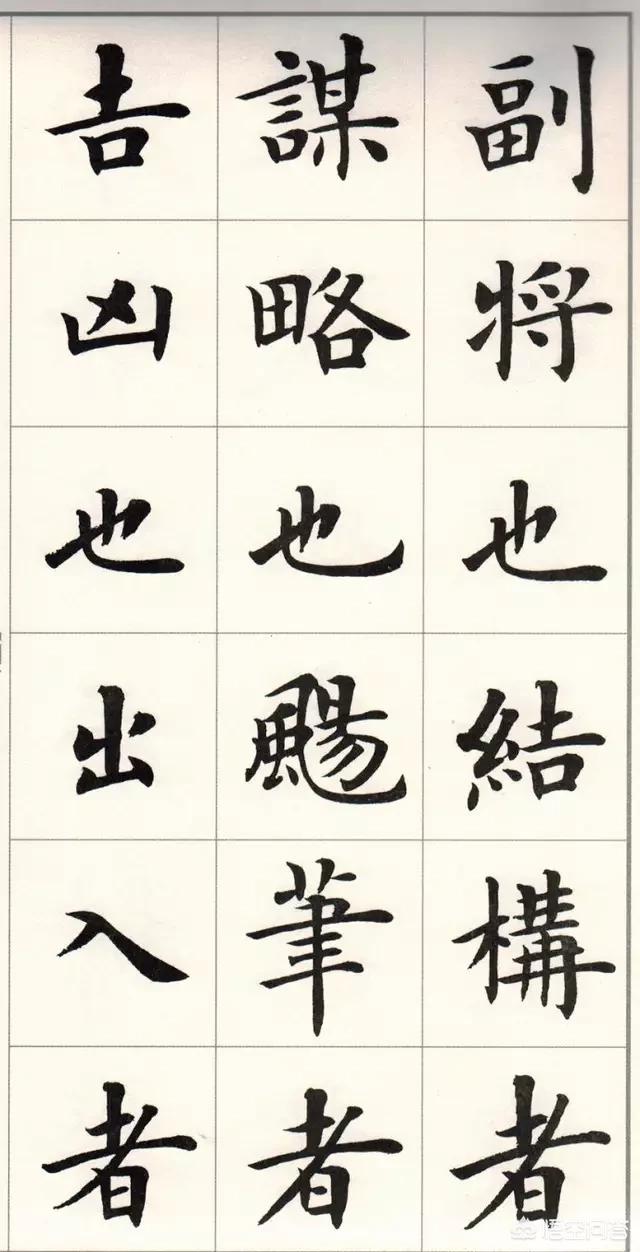 副將也結構者
謀略也颺筆者
吉凶也出入者
悟空问答